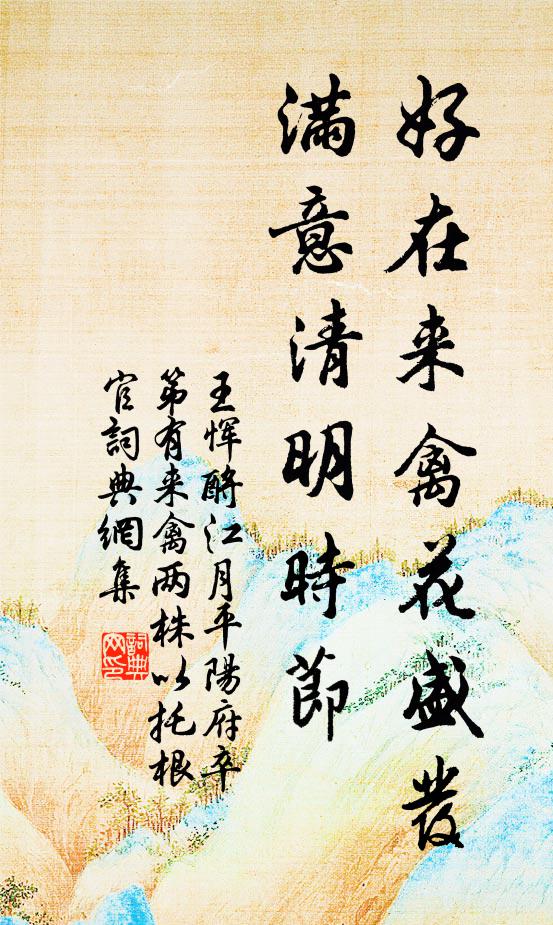 好在来禽花盛發
滿意清明時節
王恽酹江月平陽府卒
第有来禽两株以托根
官詞典網集
詞典网印